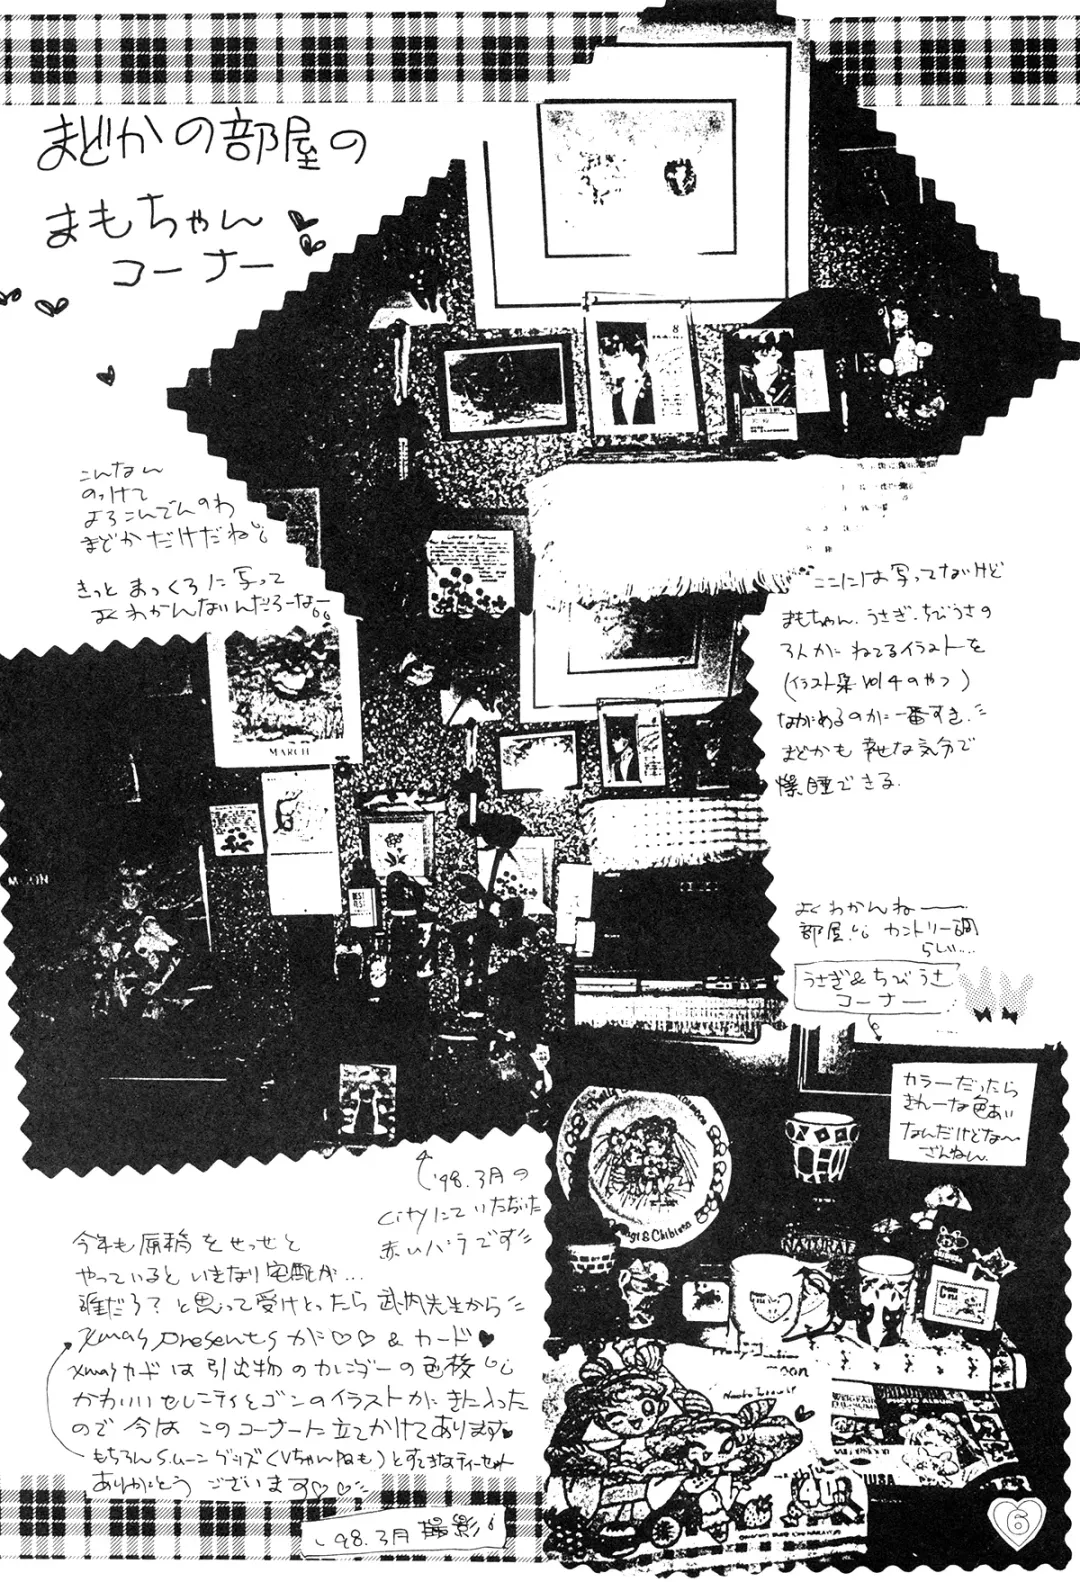 まどかの部屋の
まもちゃん
コーナー
こんなん
のっけて
よろこんでんのわ
まどかだけだね
きっと まっくろに写って
よくわかんないんだろーなー
8
MARCH
MOON
ここには写ってないけど
まもちゃん、うさぎ、ちびうさの
3人が ねてるイラストを
(イラスト集 vol 4のやつ)
ながめるのが一番すき
まどかも 幸せな気分で
爆睡できる
よくわかんねー
部屋 カントリー調
らしい…
うさぎ&ちびうさ
コーナー
カラーだったら
きれーな色あい
なんだけどな〜
ざんねん
'98.3月の
cityにていただいた
赤いバラです
& Chibiusa
NATURAL
PHOTO ALBUM
今年も原稿をせっせと
やっているといきなり宅配が…
誰だろ?と思って受けとったら 武内先生から
Xmas presentsが♡♡ & カード♥
Xmasカードは引出物のカレンダーの色校
かわいいセレニティとゴンのイラストがきに入った
ので今はこのコーナーに立てかけてあります♥
もちろんS.ムーングッズ(Vちゃんねも)とすてきなティーセット
ありがとうございます♡♡
'98.3月撮影
6